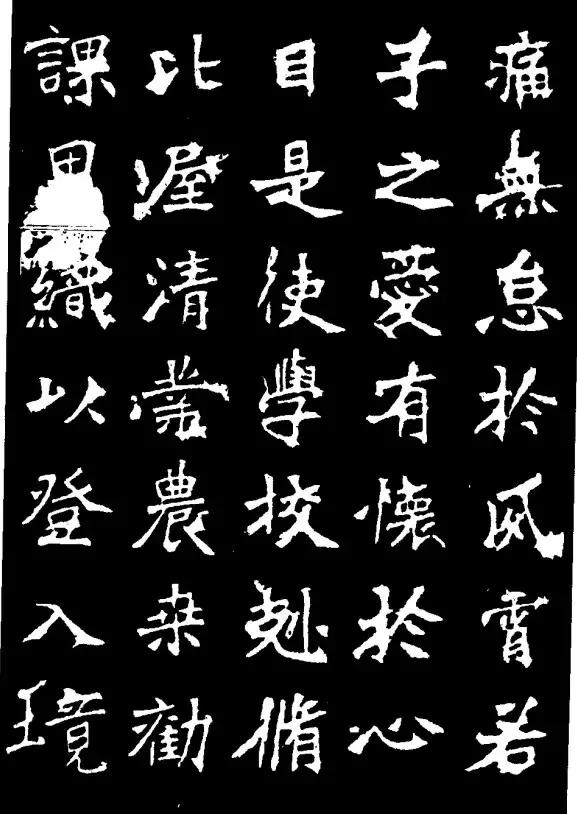 痛無怠於夙霄若
子之愛有懷於心
目是使學校剋脩
比渥清業農桒勸
課田織以登入境